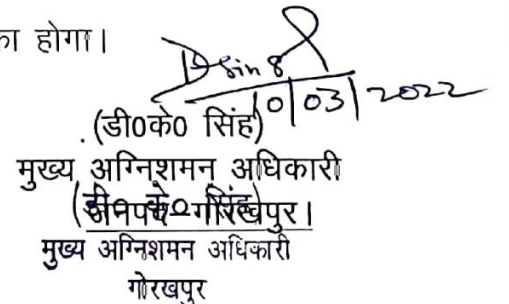 का होगा।
DSing
10/03/2022
(डी0के0 सिंह)
मुख्य अग्निशमन अधिकारी
(डी0 के0 सिंह)
जनपद-गोरखपुर।
मुख्य अग्निशमन अधिकारी
गोरखपुर